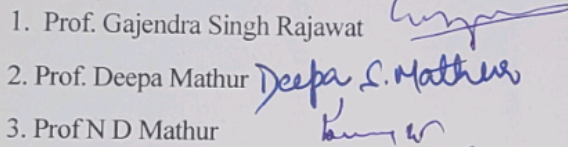 1. Prof. Gajendra Singh Rajawat
2. Prof. Deepa Mathur Deepa S. Mathur
3. Prof N D Mathur